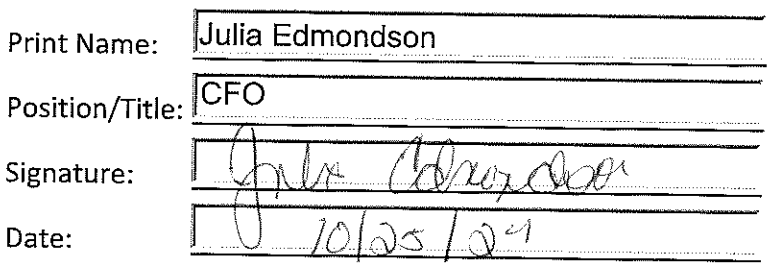 Print Name: Julia Edmondson
Position/Title: CFO
Signature: Julia Edmondson
Date: 10/25/24